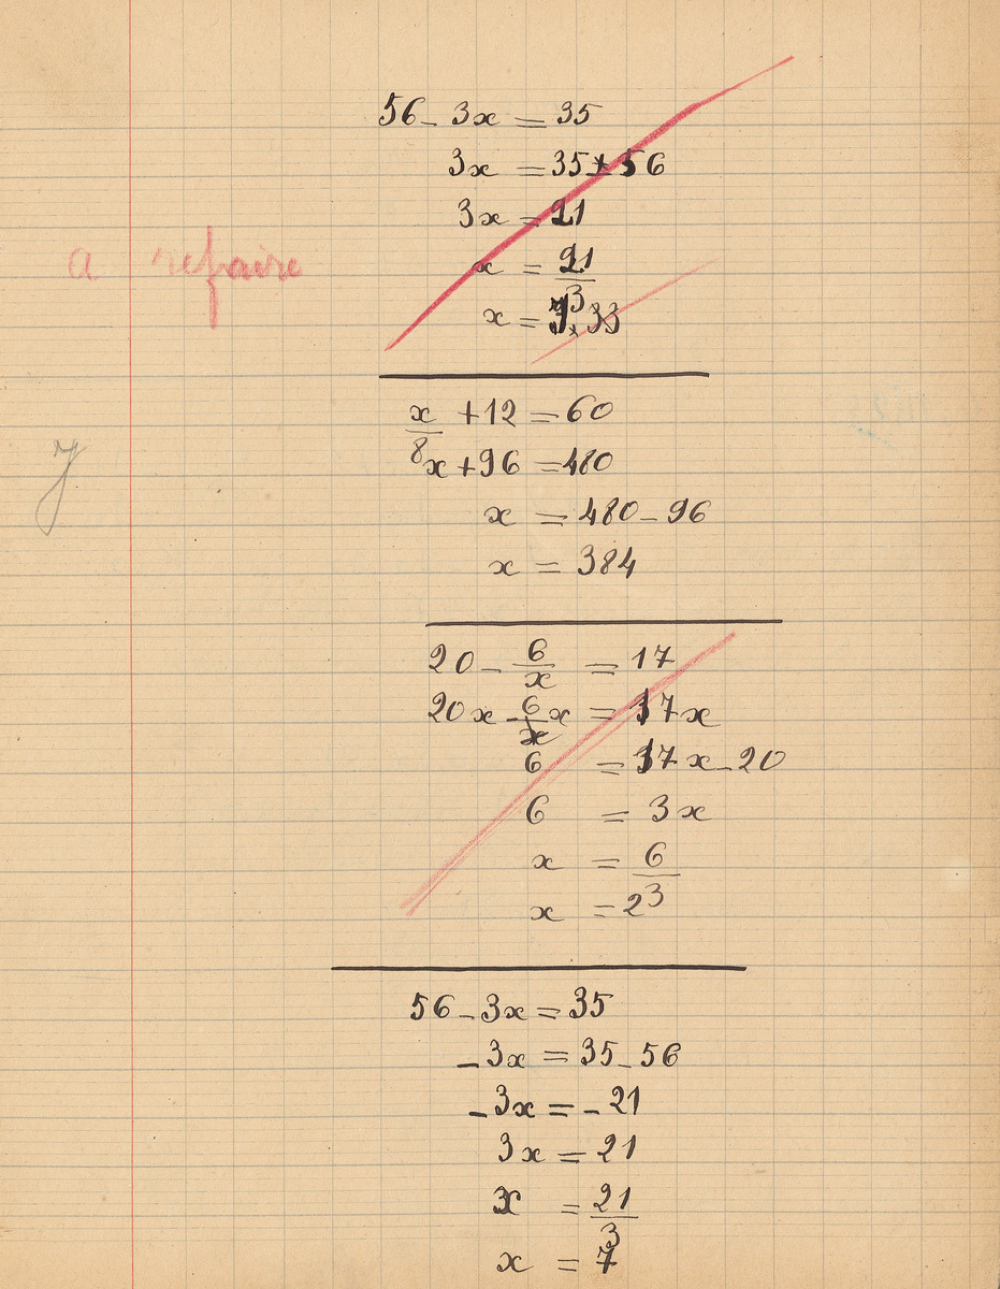 56 - 3x = 35
3x = 35 + 56
3x = 21
a refaire
x = 21/3
x =
x/8 + 12 = 60
x + 96 = 480
x = 480 - 96
x = 384
20 - 6/x = 17
20x - 6/x x = 17x
6 = 17x - 20
6 = 3x
x = 6/3
x = 2
56 - 3x = 35
- 3x = 35 - 56
- 3x = - 21
3x = 21
x = 21/3
x = 7